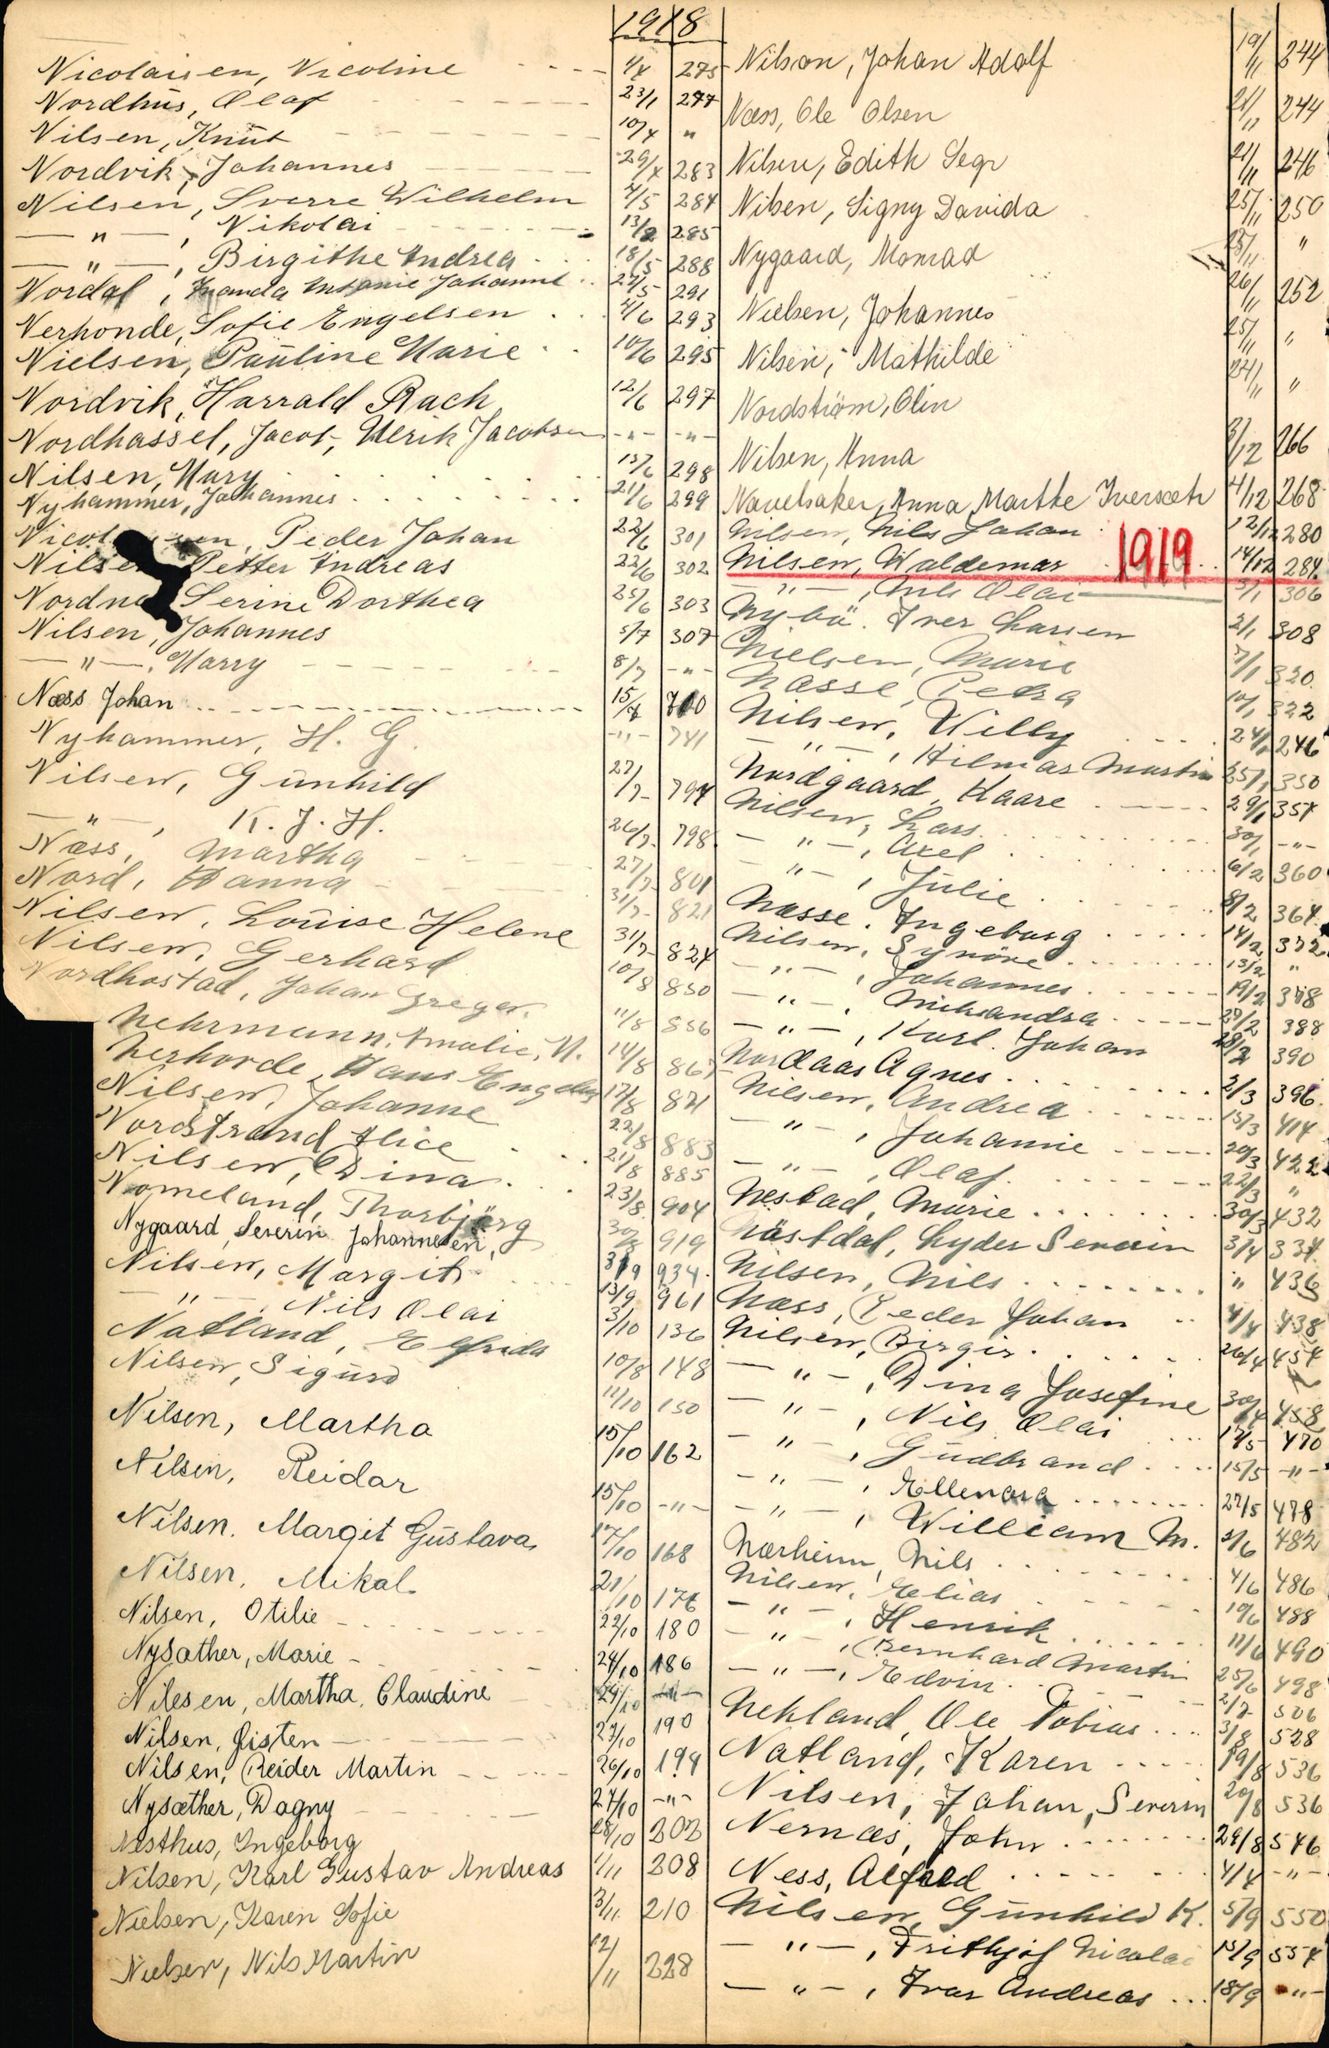 1918
Nicolaisen, Nicoline 275
Nordhus, Olaf 23/1 277
Nilsen, Knut 10/4 "
Nordvik, Johannes 29/4 283
Nilsen, Sverre Wilhelm 4/5 284
—"—, Nikolai 285
—"—, Birgithe Andrea 18/5 288
Nordal, Antonie Johanne 291
Nerhonde, Sofie Engelsen 4/6 293
Nielsen, Pauline Marie 10/6 295
Nordvik, Harrald Rach 12/6 297
Nordhassel, Jacob, Ulrik Jacobsen -"- -"-
Nilsen, Mary 298
Nyhammer, Johannes 21/6 299
Peder Johan 22/6 301
Nilsen Petter Andreas 22/6 302
Serine Dorthea 25/6 303
Nilsen, Johannes 5/7 307
—"—, Harry 8/7 -"-
Næss Johan 15/7
Nyhammer, H. G. -"- 741
Nilsen, Gunhild 794
—"—, K. J. H. 26/7 798
Næss, Martha 27/7 801
Nord, Hanna 31/7 821
Nilsen, Louise Helene 31/7 824
Nilsen, Gerhard 10/8 850
Nordhostad, Johan Greger 11/8 856
Nehrmann, Amalie, N. 14/8
Nerhorde, Hans 17/8 871
Nilsen, Johanne 22/8 883
Nordstrand Alice 21/8 885
Nilsen, Dina 23/8 904
Nomeland, Thorbjørg 30/8 919
Nygaard, Severin Johannesen, 3/9 934
Nilsen, Margit 13/9 961
—"—, Nils Olai 3/10 136
Natland, Elfrida 10/8 148
Nilsen, Sigurd 11/10 150
Nilsen, Martha 15/10 162
Nilsen, Reidar 15/10 -"-
Nilsen. Margit Gustava 17/10 168
Nilsen, Mikal 21/10 176
Nilsen, Otilie 22/10 180
Nysather, Marie 24/10 186
Nilesen, Martha, Claudine 24/10 -"-
Nilsen, Gisten 190
Nilsen, Reider Martin 26/10 194
Nysæther, Dagny 27/10 -"-
Nesthus, Ingeborg 28/10 202
Nilsen, Karl Gustav Andreas 1/11 208
Nielsen, Karen Sofie 3/11 210
Nielsen, Nils Martin 12/11 228
Nilson, Johan Adolf 19/11 244
Næss, Ole Olsen 21/11 244
Nilsen, Edith Segr 21/11 246
Nilsen, Signy Davida 25/11 250
Nygaard, Monrad 25/11 "
Nielsen, Johannes 26/11 252
Nilsen, Mathilde 25/11 "
Nordstrøm, Olin 24/11 "
Nilsen, Anna 3/12 266
Navelsaker, Anna Marthe Iversæth 4/12 268
Nilsen, Nils Johan 12/12 280
Nilsen, Waldemar 14/12 284
1919
—"—, Nils Olai 3/1 306
Nybö. Iver Larsen 2/1 308
Nielsen, Marie 7/1 320
Næsse, Petra 10/1 322
Nilsen, Willy 24/1 246
—"—, Hilmar Martin 25/1 350
Nordgaard, Kaare 29/1 354
Nilsen, Lars 30/1 -"-
—"—, Axel 6/2 360
—"—, Julie 8/2 364
Næsse, Ingeborg 14/2 372
Nilsen, Synöve 13/2 "
—"—, Johannes 19/2 378
—"—, 27/2 388
—"—, Karl Johan 28/2 390
Nordaas Agnes 2/3 396
Nilsen, Andrea 15/3 414
—"—, Johanne 20/3 422
—"—, Olaf 22/3 "
Nestad, Marie 30/3 432
Nästdal, Lyder Severin 3/4 334
Nilsen, Nils " 436
Næss, Peder Johan 4/4 438
Nilsen, Birgir 26/4 454
—"—, Dina Josefine 30/4 458
—"—, Nils Olai 12/5 470
—"—, Gudbrand 15/5 -"-
—"—, Ellenara 27/5 478
—"—, William M. 3/6 482
Nærheim, Nils 4/6 486
Nilsen, Elias 10/6 488
—"—, Henrik 11/6 490
—"—, Bernhard Martin 25/6 498
—"—, Edvin 2/7 506
Nekland, Ole Tobias 3/8 528
Natland, Karen 19/8 536
Nilsen, Johan, Severin 20/8 536
Nernæs, John 29/8 546
Ness, Alfred 4/4 -"-
Nilsen, Gunhild K. 5/9 550
—"—, Frithjof Nicolai 15/9 554
—"—, Ivar Andreas 18/9 -"-